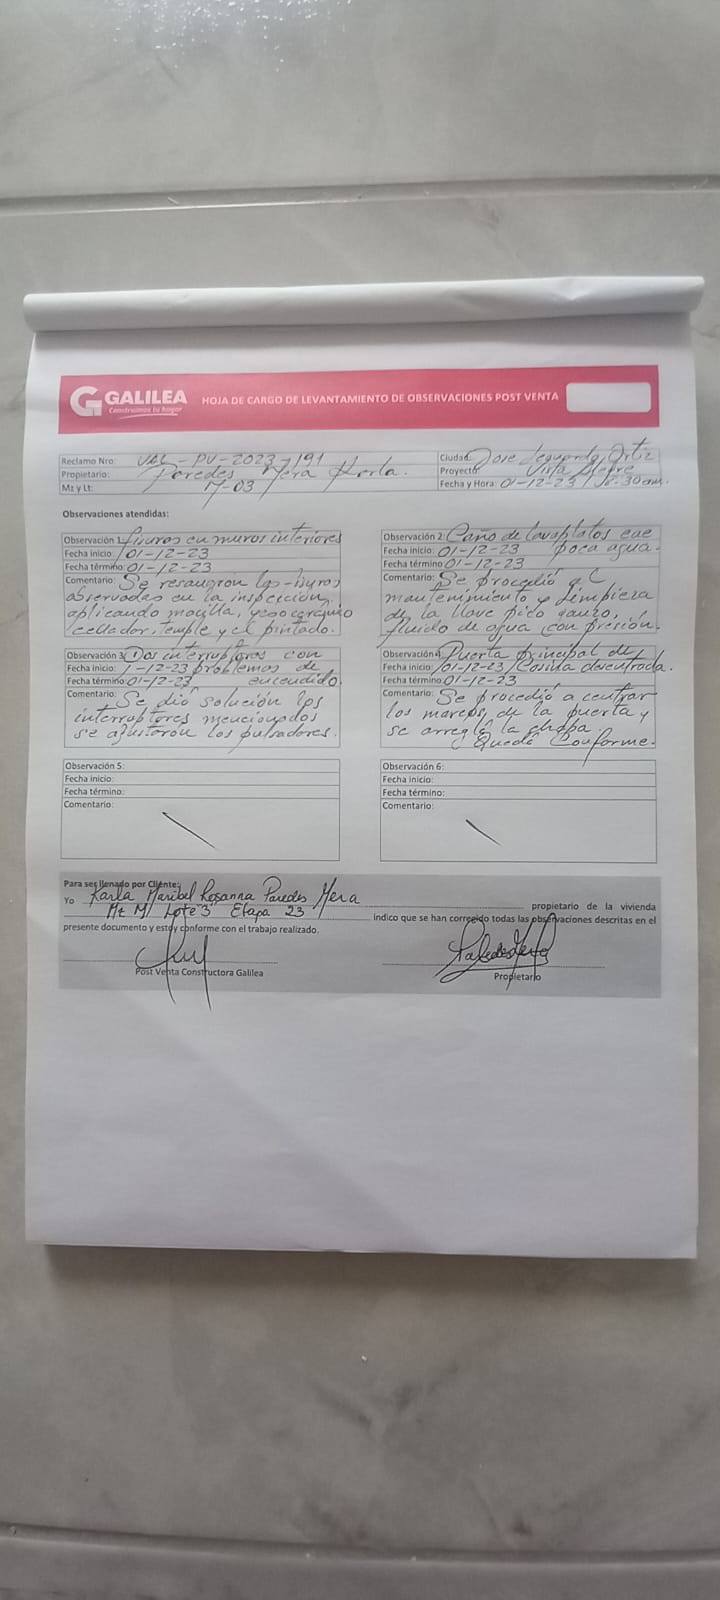 GALILEA
Construimos tu hogar
HOJA DE CARGO DE LEVANTAMIENTO DE OBSERVACIONES POST VENTA
Reclamo Nro: VAL-PV-2023-191
Propietario: Paredes Mera Karla.
Mz y Lt: M-03
Ciudad: Jose Leguardo Ortiz
Proyecto: Vista Alegre
Fecha y Hora: 01-12-23
Observaciones atendidas:
Observación 1: fisuras en muros interiores
Fecha inicio: 01-12-23
Fecha término: 01-12-23
Comentario: Se resanaron las fisuras
observadas en la inspección,
aplicando masilla, yeso ceramico
sellador, temple y el pintado.
Observación 2: Caño de lavaplatos cae
Fecha inicio: 01-12-23 poca agua.
Fecha término: 01-12-23
Comentario: Se procedió al
mantenimiento y limpieza
de la llave pico ganzo,
fluido de agua con presión.
Observación 3: Dos interruptores con
Fecha inicio: 1-12-23 problemas de
Fecha término: 01-12-23 encendido.
Comentario: Se dió solución los
interruptores mencionados
se ajustaron los pulsadores.
Observación 4: Puerta principal de
Fecha inicio: 01-12-23 Cosina descentrada.
Fecha término: 01-12-23
Comentario: Se procedió a centrar
los marcos de la puerta y
se arregló la chapa.
Quedó Conforme.
Observación 5:
Fecha inicio:
Fecha término:
Comentario:
Observación 6:
Fecha inicio:
Fecha término:
Comentario:
Para ser llenado por Cliente:
Yo Karla Maribel Rosanna Paredes Mera propietario de la vivienda
Mz M Lote 3 Etapa 23 indico que se han corregido todas las observaciones descritas en el
presente documento y estoy conforme con el trabajo realizado.
Post Venta Constructora Galilea
Propietario